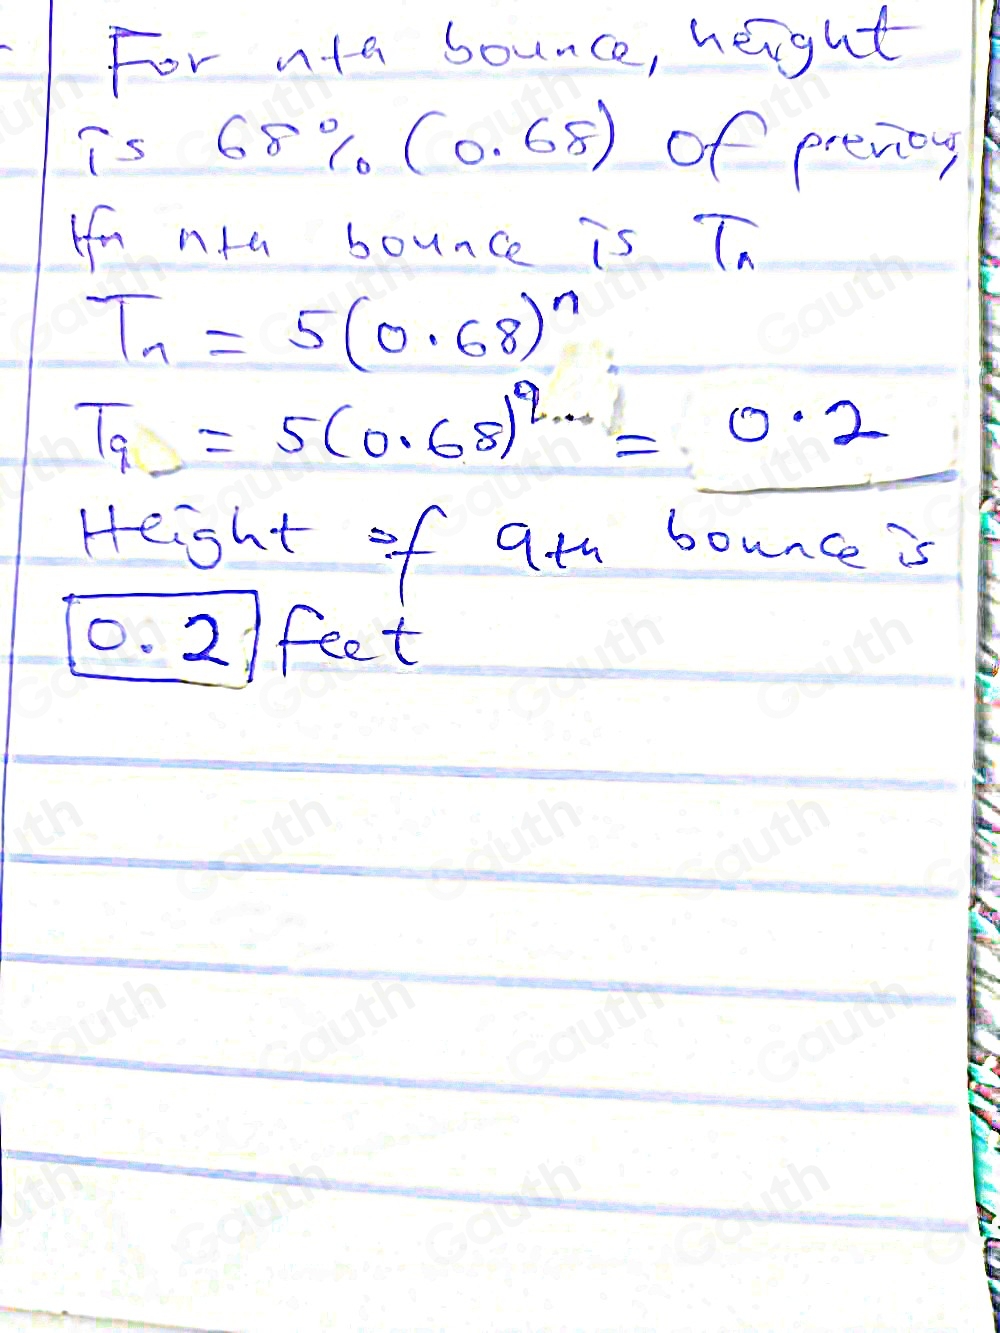 For nth bounce, height
is 68% (0.68) of previous,
If nth bounce is Tₙ
Tₙ = 5(0.68)ⁿ
T₉ = 5(0.68)⁹... = 0.2
Height of 9th bounce is
0.2 feet